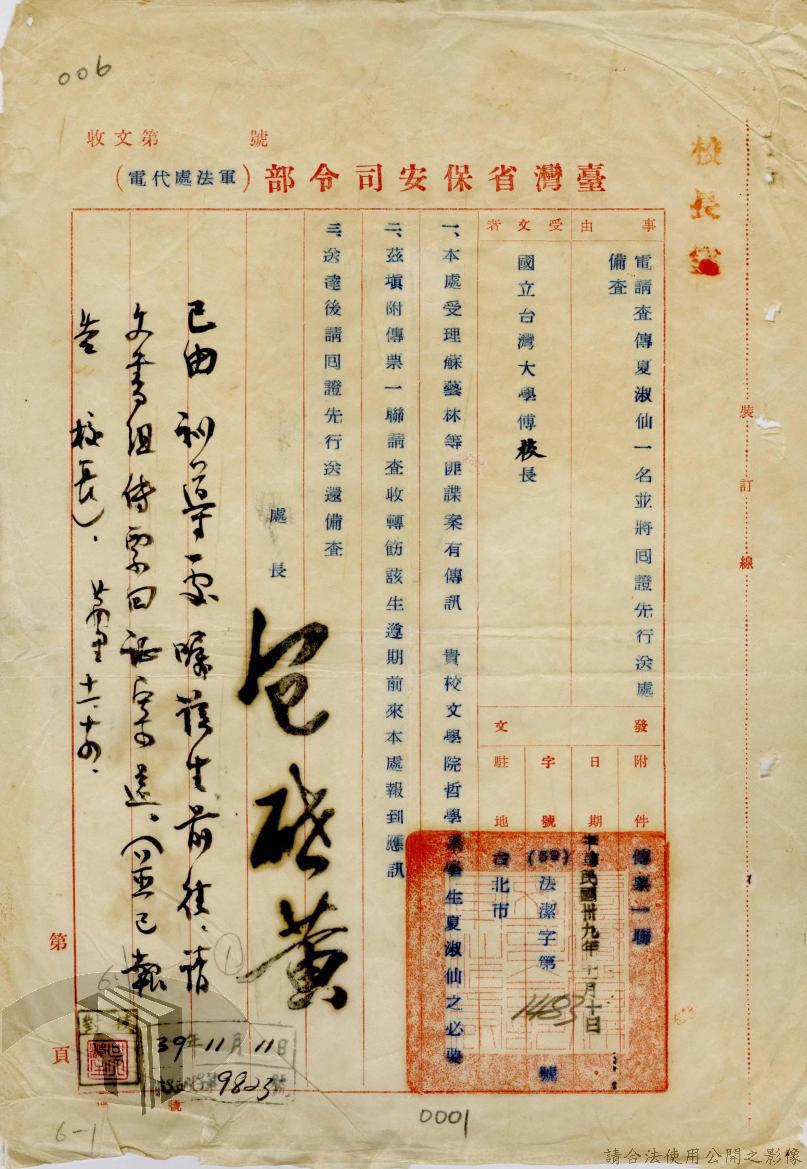 006
收文第 號
臺灣省保安司令部（軍法處代電）
校長
裝訂線
事由
電請查傳夏淑仙一名並將回證先行送處
備查
受文者
國立台灣大學傅校長
發文
附件
傳票一聯
日期
中華民國卅九年十一月十日
字號
(39)法潔字第1483號
駐地
台北市
一、本處受理蘇藝林等匪諜案有傳訊 貴校文學院哲學系學生夏淑仙之必要
二、茲填附傳票一聯請查收轉飭該生遵期前來本處報到應訊
三、送達後請回證先行送還備查
處長
包啟黃
已由訓導處曉該生前往，請
文書組傳票回證寄還。（並已報
告校長）。 十一、十四、
①
第 頁
6
校對
39年11月11日
9823號
0001
6-1
請合法使用公開之影像